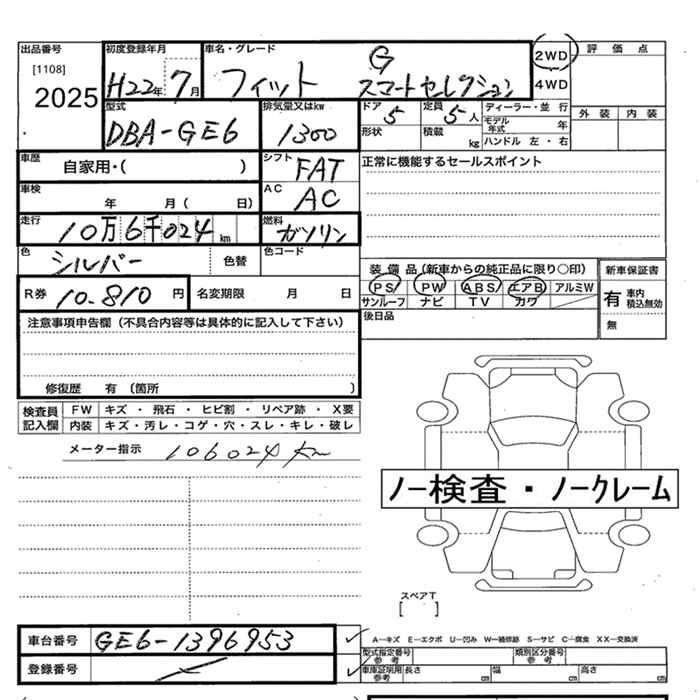 出品番号 初度登録年月 車名・グレード 2WD 評価点
[1108] H22年 7月 フィット G スマートセレクション 4WD
2025 外装 内装
型式 排気量又はkw ドア 定員 ディーラー・並行
DBA-GE6 1300 5 5人 モデル年式 年
形状 積載 kg ハンドル 左・右
車歴 自家用・( ) シフト FAT 正常に機能するセールスポイント
車検 年 月( 日) AC AC
走行 10万6千024km 燃料 ガソリン
色 シルバー 色替 色コード
装備品(新車からの純正品に限り○印) 新車保証書
R券 10.810円 名変期限 月 日 PS PW ABS エアB アルミW 有 車内積込無効
サンルーフ ナビ TV カワ
注意事項申告欄(不具合内容等は具体的に記入して下さい) 後日品 無
修復歴 有 (箇所 )
検査員記入欄 FW キズ・飛石・ヒビ割・リペア跡・X要
内装 キズ・汚レ・コゲ・穴・スレ・キレ・破レ
メーター指示 106024km
ノー検査・ノークレーム
スペアT
[ ]
車台番号 GE6-1396953 A―キズ E―エクボ U―凹み W―補修跡 S―サビ C―腐食 XX―交換済
型式指定番号参考 類別区分番号参考
登録番号 車庫証明用参考 長さ cm 幅 cm 高さ cm